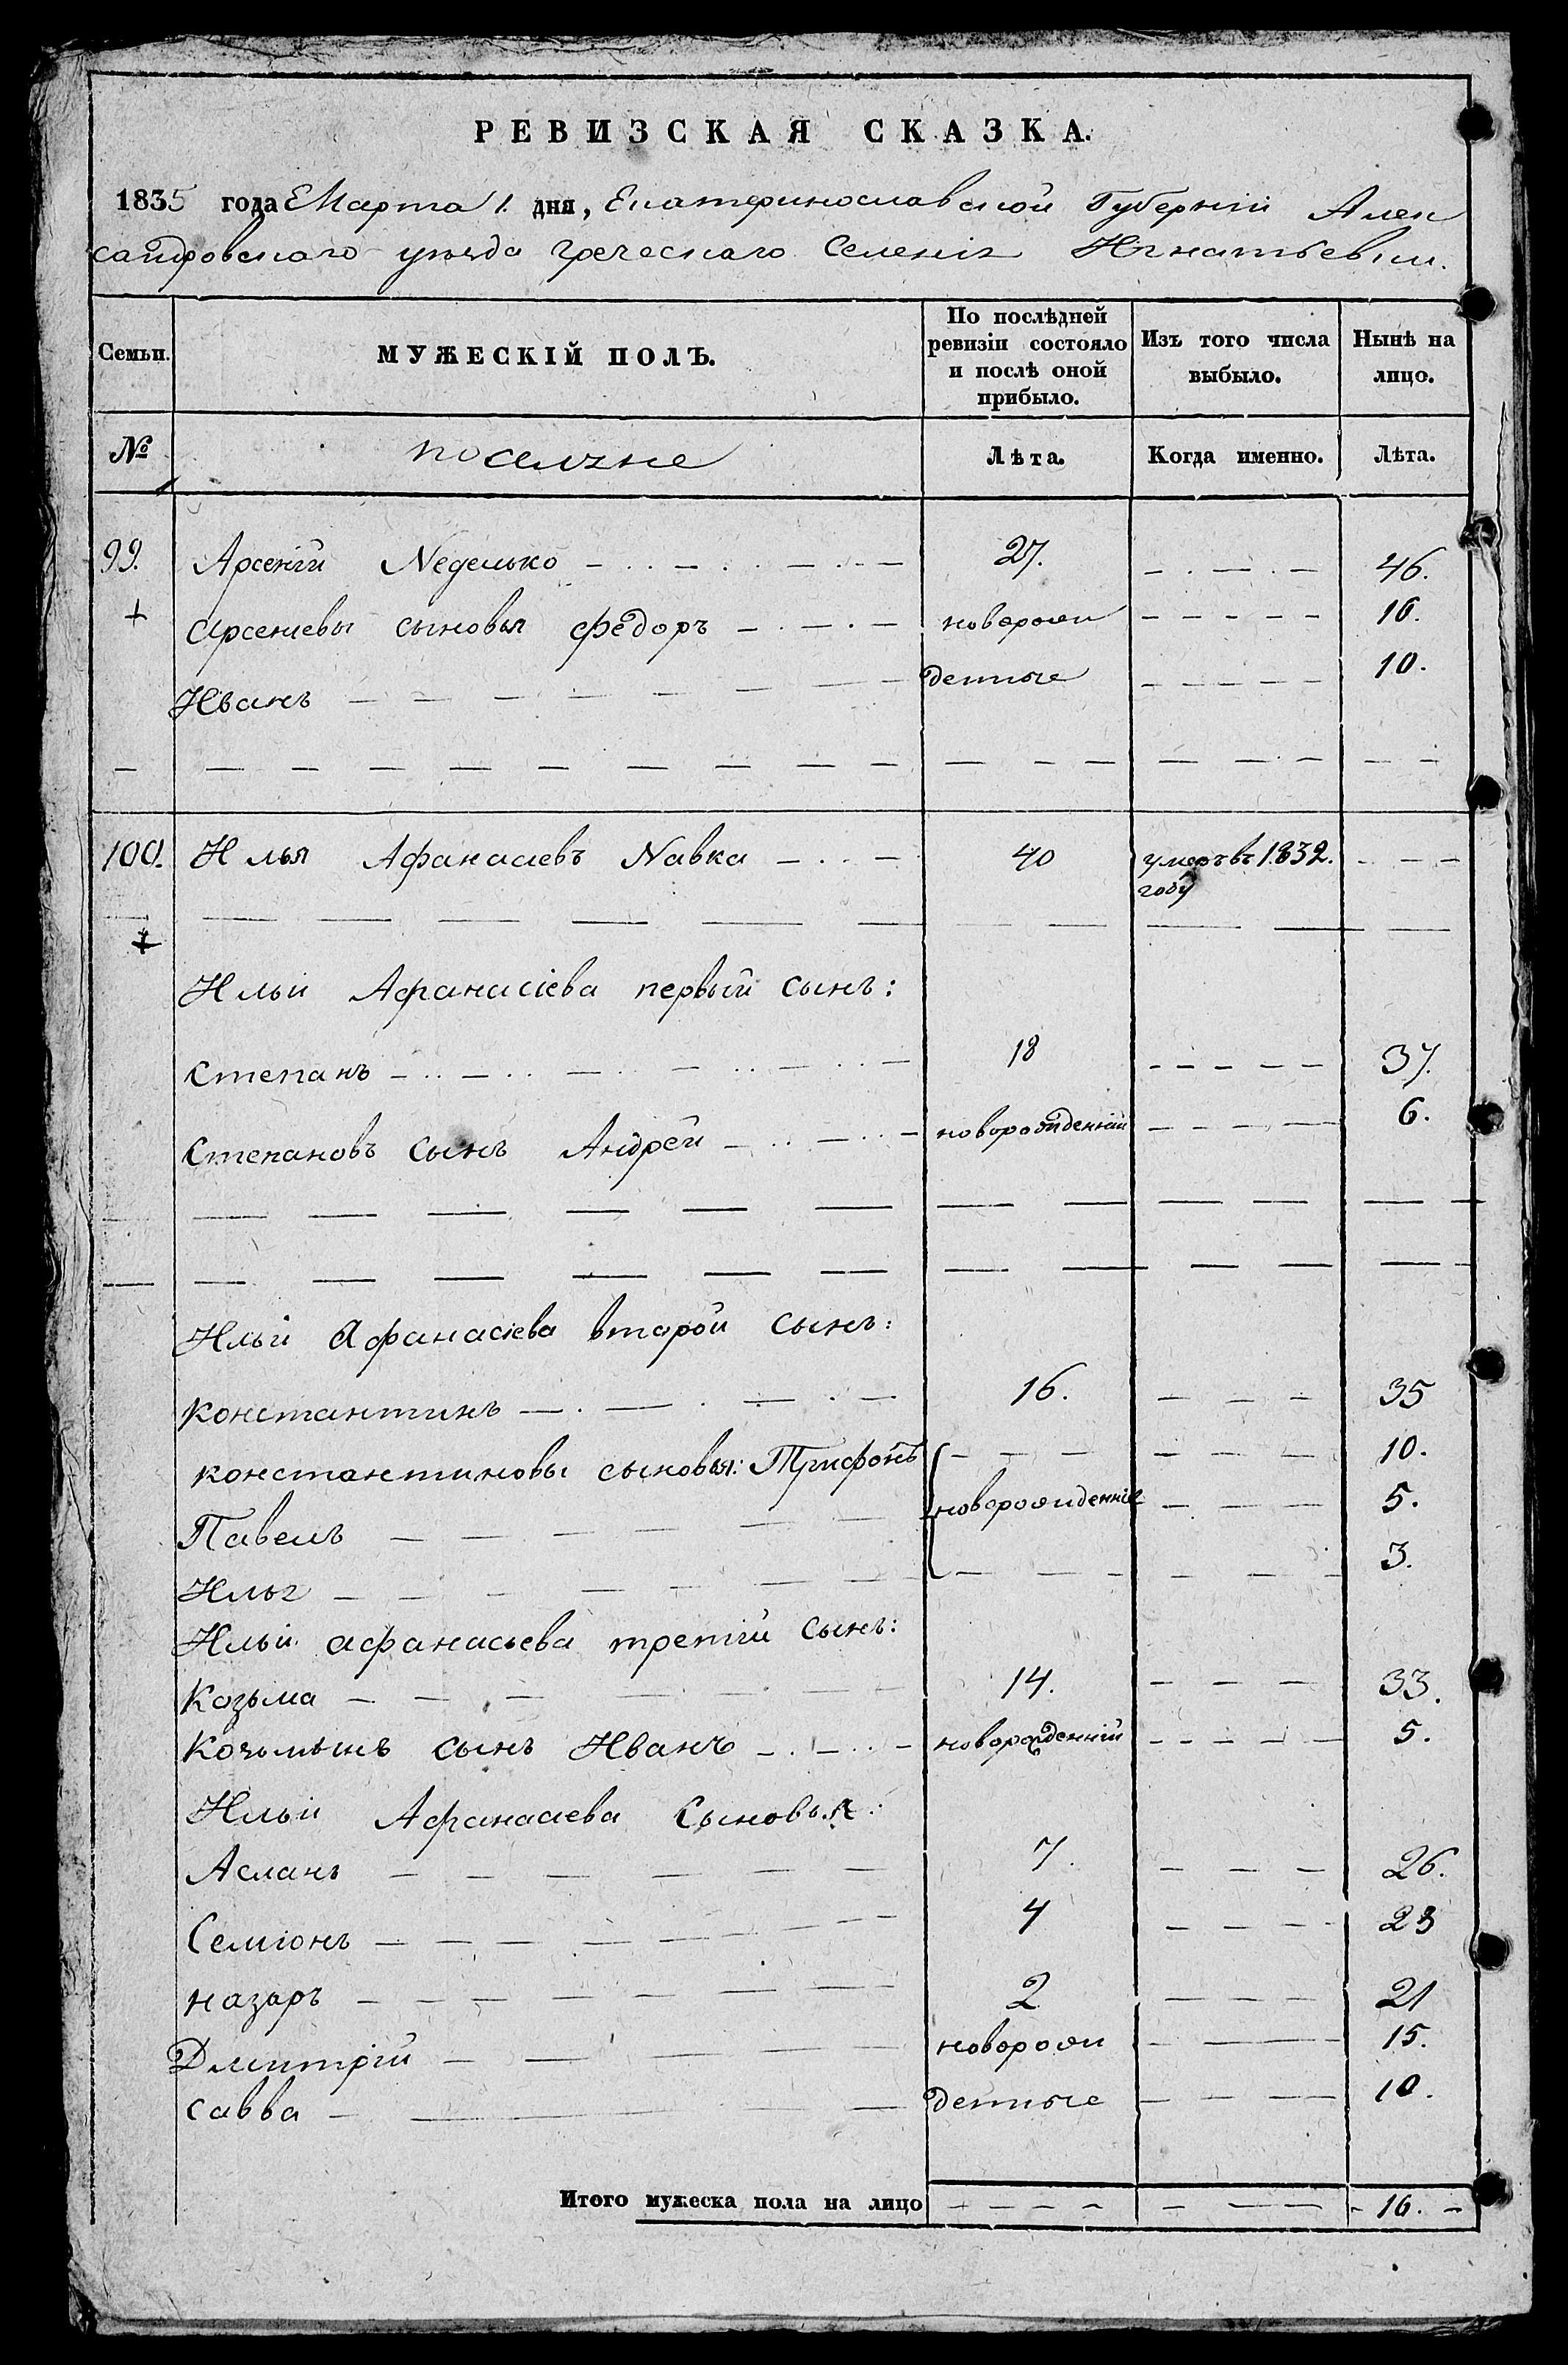 РЕВИЗСКАЯ СКАЗКА.
1835 года Марта 1. дня, Екатеринославской Губерніи Алек
сандровскаго уѣзда греческаго Селенія Игнатьевки.
Семьи. МУЖЕСКІЙ ПОЛЪ. По послѣдней ревизіи состояло и послѣ оной прибыло. Изъ того числа выбыло. Нынѣ на лицо.
№ поселяне Лѣта. Когда именно. Лѣта.
99. Арсеній Неделько 27. 46.
+ Арсениевы сыновья Федоръ новорож 16.
Иванъ денные 10.
100. Илья Афанасиевъ Чавка 40 умеръ въ 1832.
году
+
Ильи Афанасіева первый сынъ:
Степанъ 18 37.
Степановъ сынъ Андрей новорожденній 6.
Ильи Афанасіева второй сынъ:
Константинъ 16. 35
Константиновы сыновья: Трифонъ 10.
Павелъ новорожденніе 5.
Илья 3.
Ильи афанасьева третій сынъ:
Козьма 14. 33.
Козьминъ сынъ Иванъ новорожденній 5.
Ильи Афанасиева Сыновья:
Асланъ 7. 26.
Семіонъ 4 23
Назаръ 2 21
Дмитрій новорож 15.
Савва денные 10.
Итого мужеска пола на лицо 16.